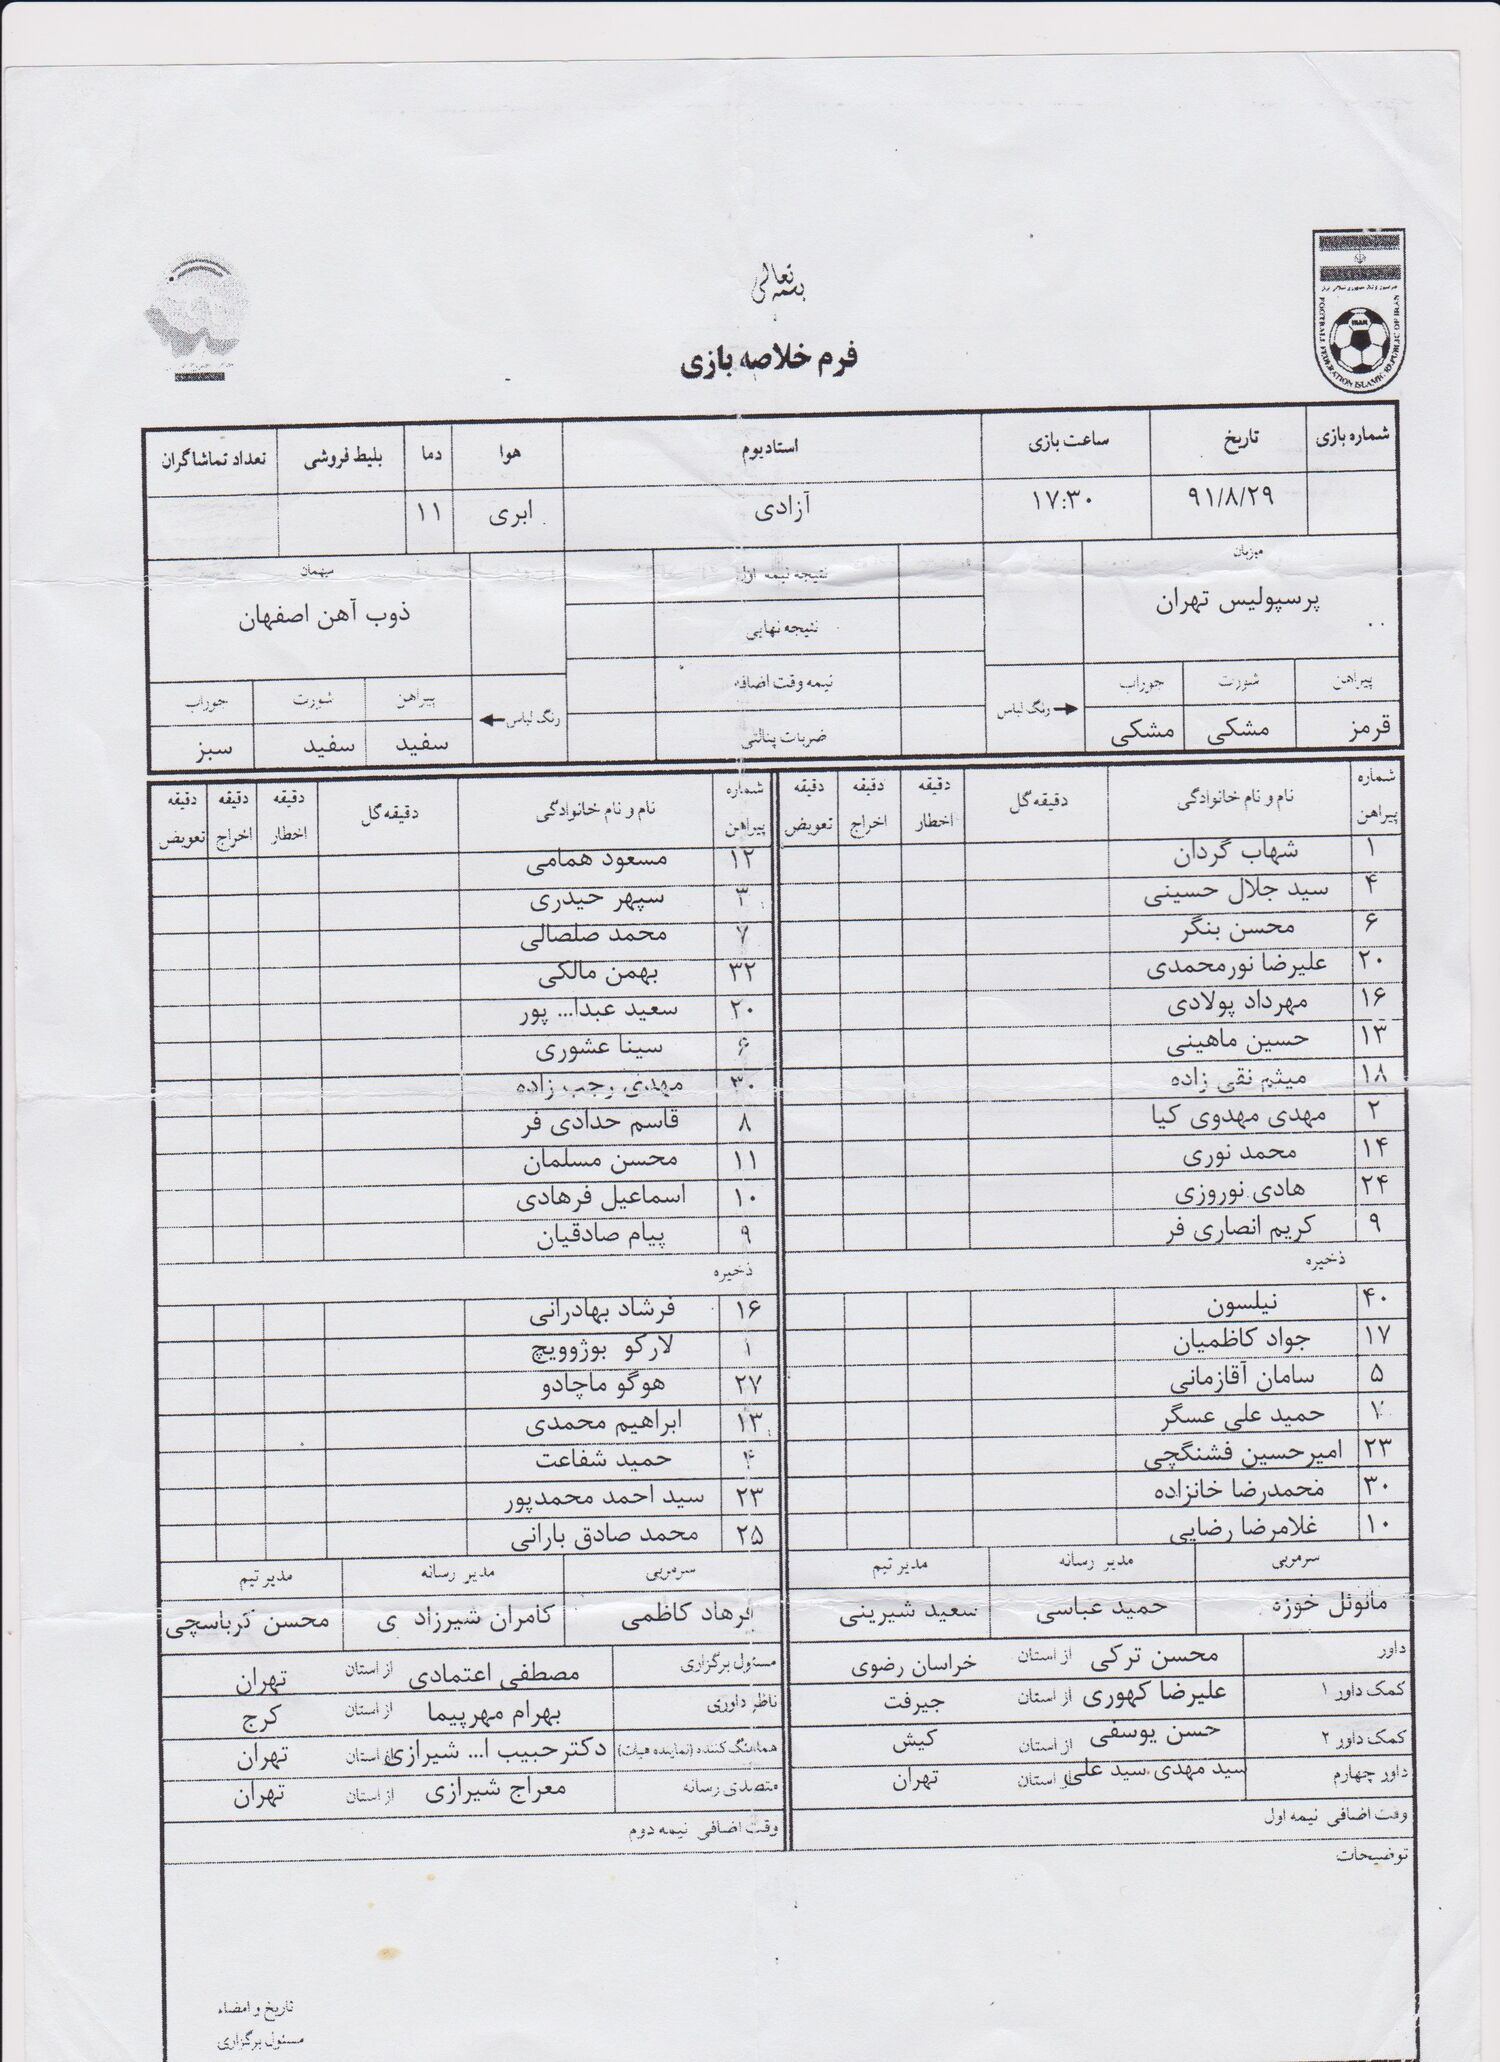 بسمه تعالی
فرم خلاصه بازی
FOOTBALL FEDERATION ISLAMIC REPUBLIC OF IRAN
IRAN
شماره بازی تاریخ ساعت بازی استادیوم هوا دما بلیط فروشی تعداد تماشاگران
۹۱/۸/۲۹ ۱۷:۳۰ آزادی ابری ۱۱
میزبان نتیجه نیمه اول میهمان
پرسپولیس تهران نتیجه نهایی ذوب آهن اصفهان
پیراهن شورت جوراب رنگ لباس نیمه وقت اضافه رنگ لباس پیراهن شورت جوراب
قرمز مشکی مشکی ضربات پنالتی سفید سفید سبز
شماره پیراهن نام و نام خانوادگی دقیقه گل دقیقه اخطار دقیقه اخراج دقیقه تعویض شماره پیراهن نام و نام خانوادگی دقیقه گل دقیقه اخطار دقیقه اخراج دقیقه تعویض
۱ شهاب گردان ۱۲ مسعود همامی
۴ سید جلال حسینی ۳ سپهر حیدری
۶ محسن بنگر ۷ محمد صلصالی
۲۰ علیرضا نورمحمدی ۳۲ بهمن مالکی
۱۶ مهرداد پولادی ۲۰ سعید عبدا... پور
۱۳ حسین ماهینی ۶ سینا عشوری
۱۸ میثم نقی زاده ۳۰ مهدی رجب زاده
۲ مهدی مهدوی کیا ۸ قاسم حدادی فر
۱۴ محمد نوری ۱۱ محسن مسلمان
۲۴ هادی نوروزی ۱۰ اسماعیل فرهادی
۹ کریم انصاری فر ۹ پیام صادقیان
ذخیره ذخیره
۴۰ نیلسون ۱۶ فرشاد بهادرانی
۱۷ جواد کاظمیان ۱ لارکو بوژوویچ
۵ سامان آقازمانی ۲۷ هوگو ماچادو
حمید علی عسگر ۱۳ ابراهیم محمدی
۲۳ امیرحسین فشنگچی ۴ حمید شفاعت
۳۰ محمدرضا خانزاده ۲۳ سید احمد محمدپور
۱۰ غلامرضا رضایی ۲۵ محمد صادق بارانی
سرمربی مدیر رسانه مدیر تیم سرمربی مدیر رسانه مدیر تیم
مانوئل خوزه حمید عباسی سعید شیرینی فرهاد کاظمی کامران شیرزاد ی محسن کرباسچی
داور محسن ترکی از استان خراسان رضوی مسئول برگزاری مصطفی اعتمادی از استان تهران
کمک داور ۱ علیرضا کهوری از استان جیرفت ناظر داوری بهرام مهرپیما از استان کرج
کمک داور ۲ حسن یوسفی از استان کیش هماهنگ کننده (نماینده هیات) دکتر حبیب ا... شیرازی از استان تهران
داور چهارم سید مهدی سید علی از استان تهران متصدی رسانه معراج شیرازی از استان تهران
وقت اضافی نیمه اول وقت اضافی نیمه دوم
توضیحات
تاریخ و امضاء
مسئول برگزاری